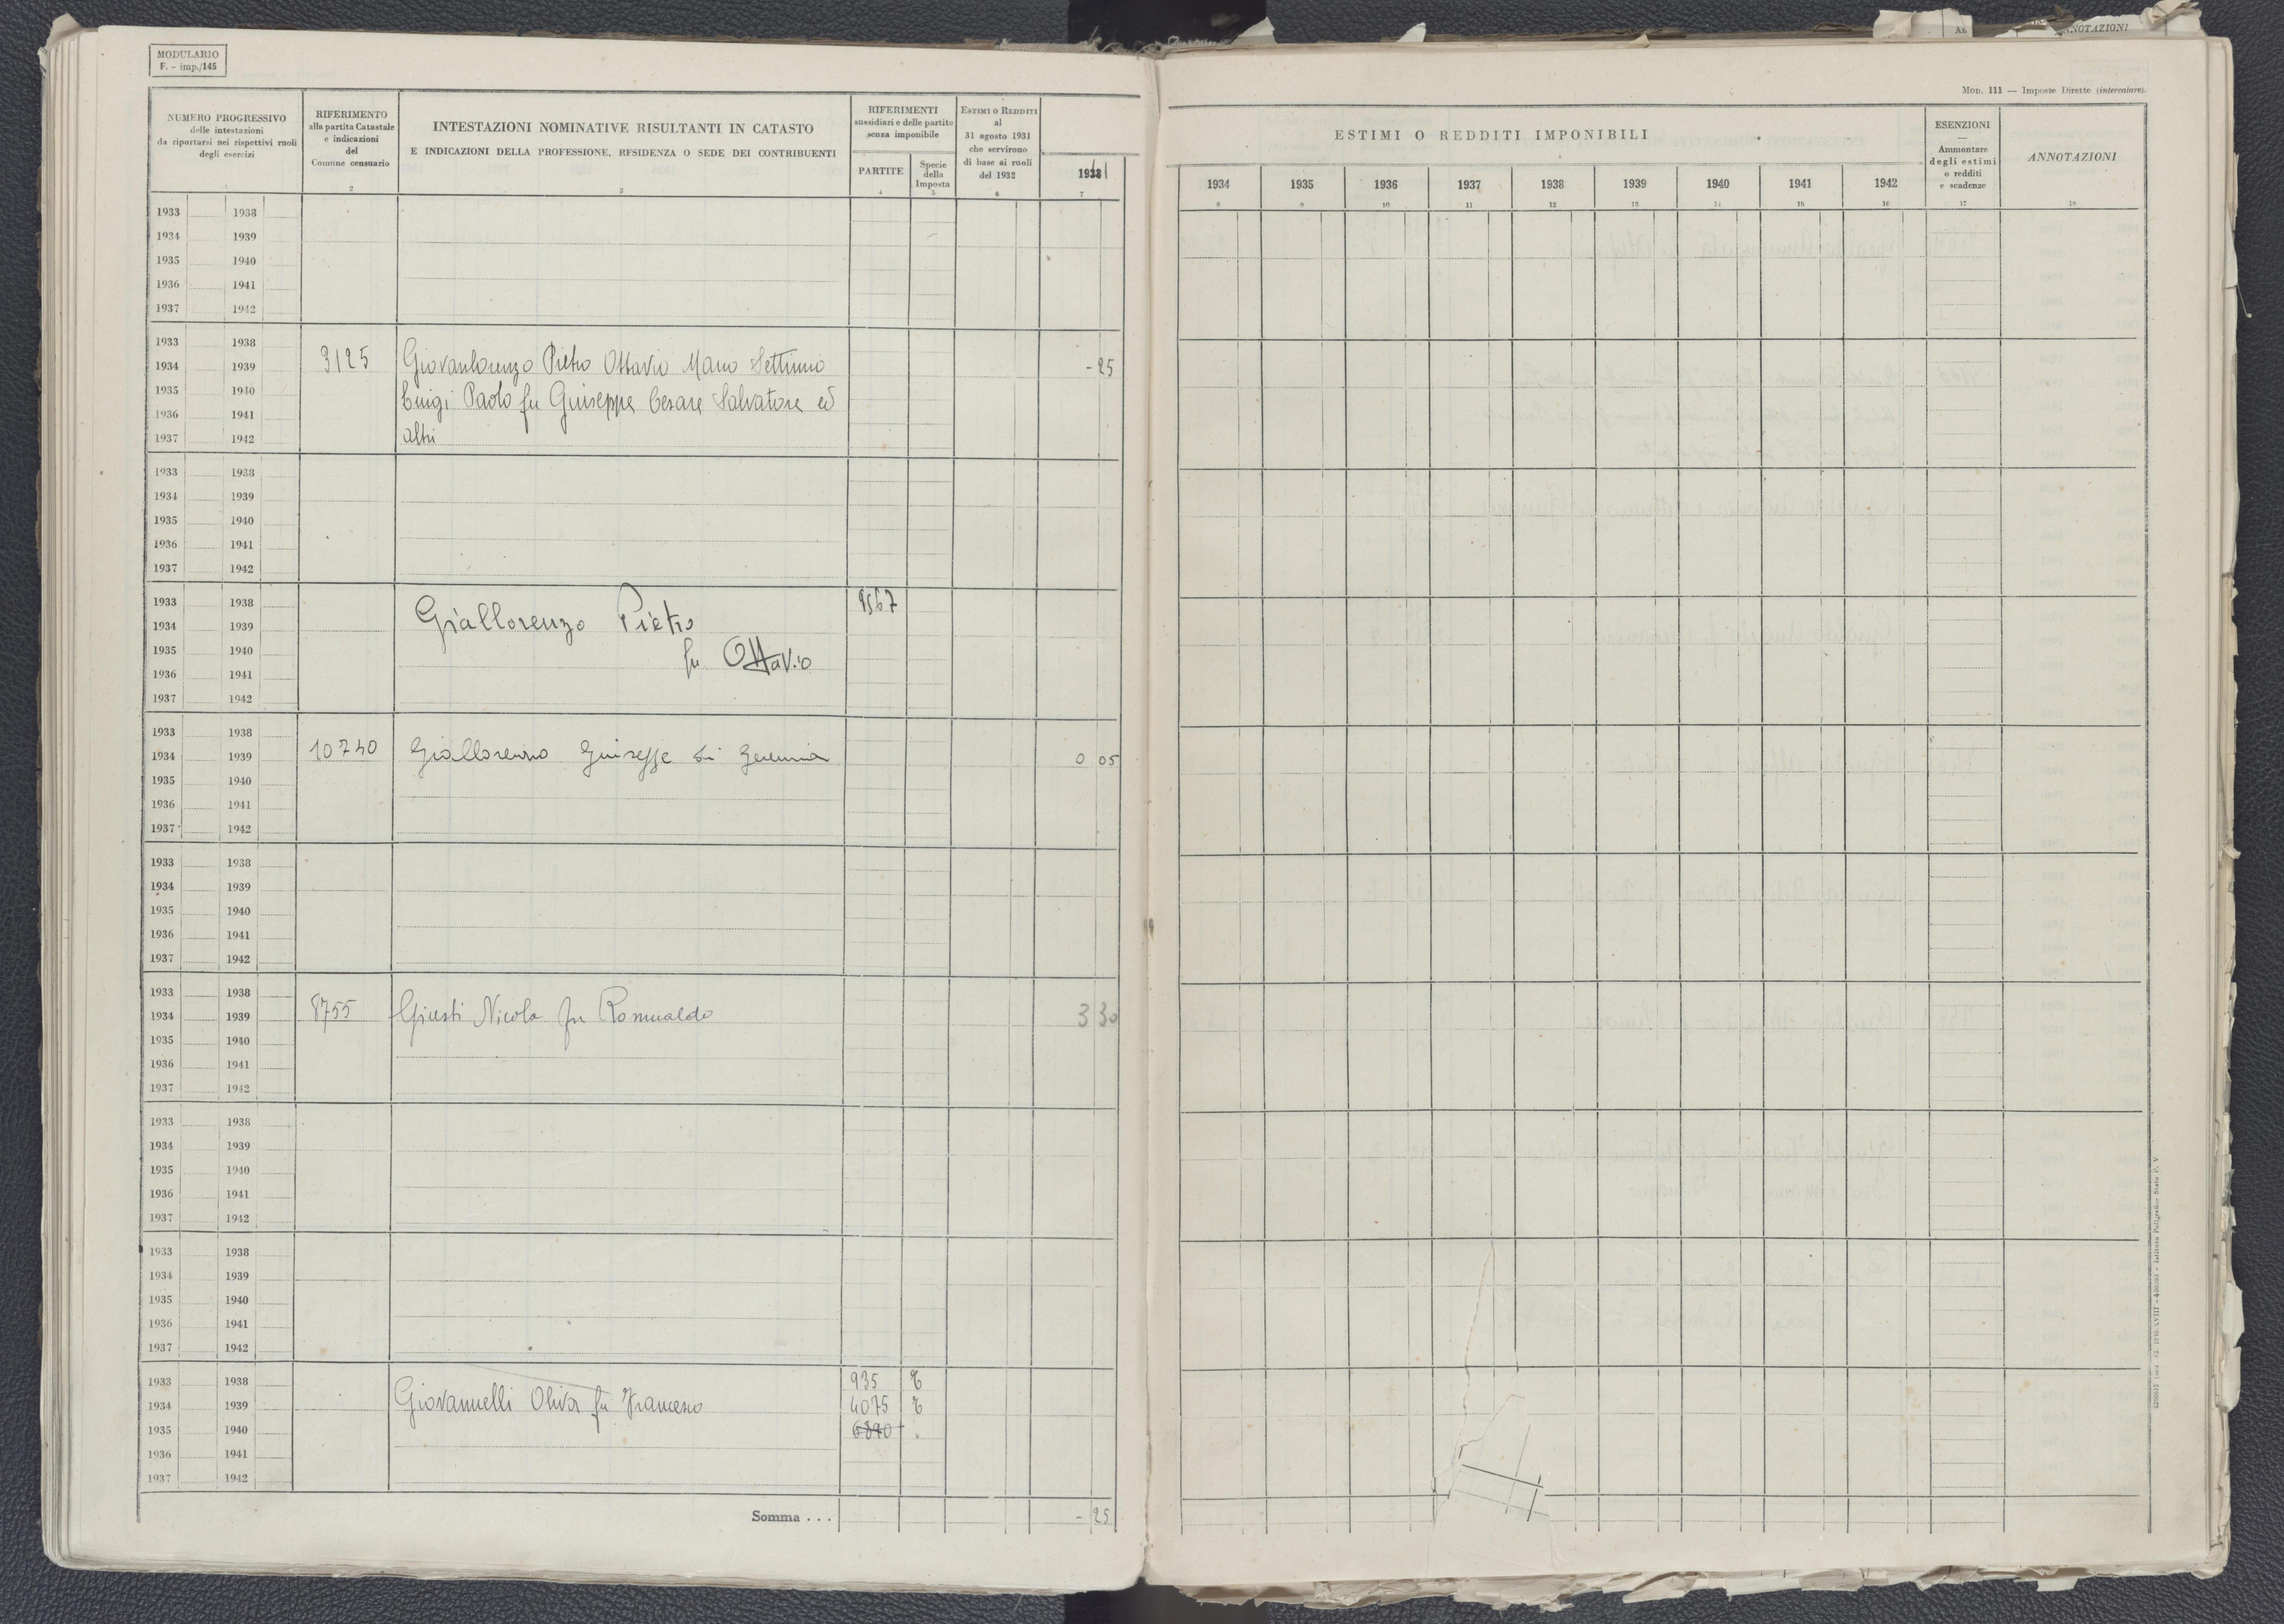 MODULARIO
F. - imp./145
NUMERO PROGRESSIVO
delle intestazioni
da riportarsi nei rispettivi ruoli
degli esercizi
1
RIFERIMENTO
alla partita Catastale
e indicazioni
del
Comune censuario
2
INTESTAZIONI NOMINATIVE RISULTANTI IN CATASTO
E INDICAZIONI DELLA PROFESSIONE, RESIDENZA O SEDE DEI CONTRIBUENTI
3
RIFERIMENTI
sussidiari e delle partite
senza imponibile
PARTITE
4
Specie
della
Imposta
5
ESTIMI O REDDITI
al
31 agosto 1931
che servirono
di base ai ruoli
del 1932
6
7
1933 1938
1934 1939
1935 1940
1936 1941
1937 1942
1933 1938
1934 1939 3125 Giovanlorenzo Pietro Ottavio Mario Settimio - 25
1935 1940 Luigi Paolo fu Giuseppe Cesare Salvatore ed
1936 1941
1937 1942 altri
1933 1938
1934 1939
1935 1940
1936 1941
1937 1942
1933 1938 9567
1934 1939 Giallorenzo Pietro
1935 1940 fu Ottavio
1936 1941
1937 1942
1933 1938
1934 1939 10740 Giallorenzo Giuseppe di Geremia 0 05
1935 1940
1936 1941
1937 1942
1933 1938
1934 1939
1935 1940
1936 1941
1937 1942
1933 1938
1934 1939 8755 Giusti Nicola fu Romualdo 3 30
1935 1940
1936 1941
1937 1942
1933 1938
1934 1939
1935 1940
1936 1941
1937 1942
1933 1938
1934 1939
1935 1940
1936 1941
1937 1942
1933 1938 935
1934 1939 Giovannelli Oliva fu Francesco 4075
1935 1940
1936 1941
1937 1942
Somma . . . - 25
ANNOTAZIONI
MOD. 111 — Imposte Dirette (intercalare).
ESTIMI O REDDITI IMPONIBILI
1934 1935 1936 1937 1938 1939 1940 1941 1942
8 9 10 11 12 13 14 15 16
ESENZIONI
—
Ammontare
degli estimi
o redditi
e scadenze
17
ANNOTAZIONI
18